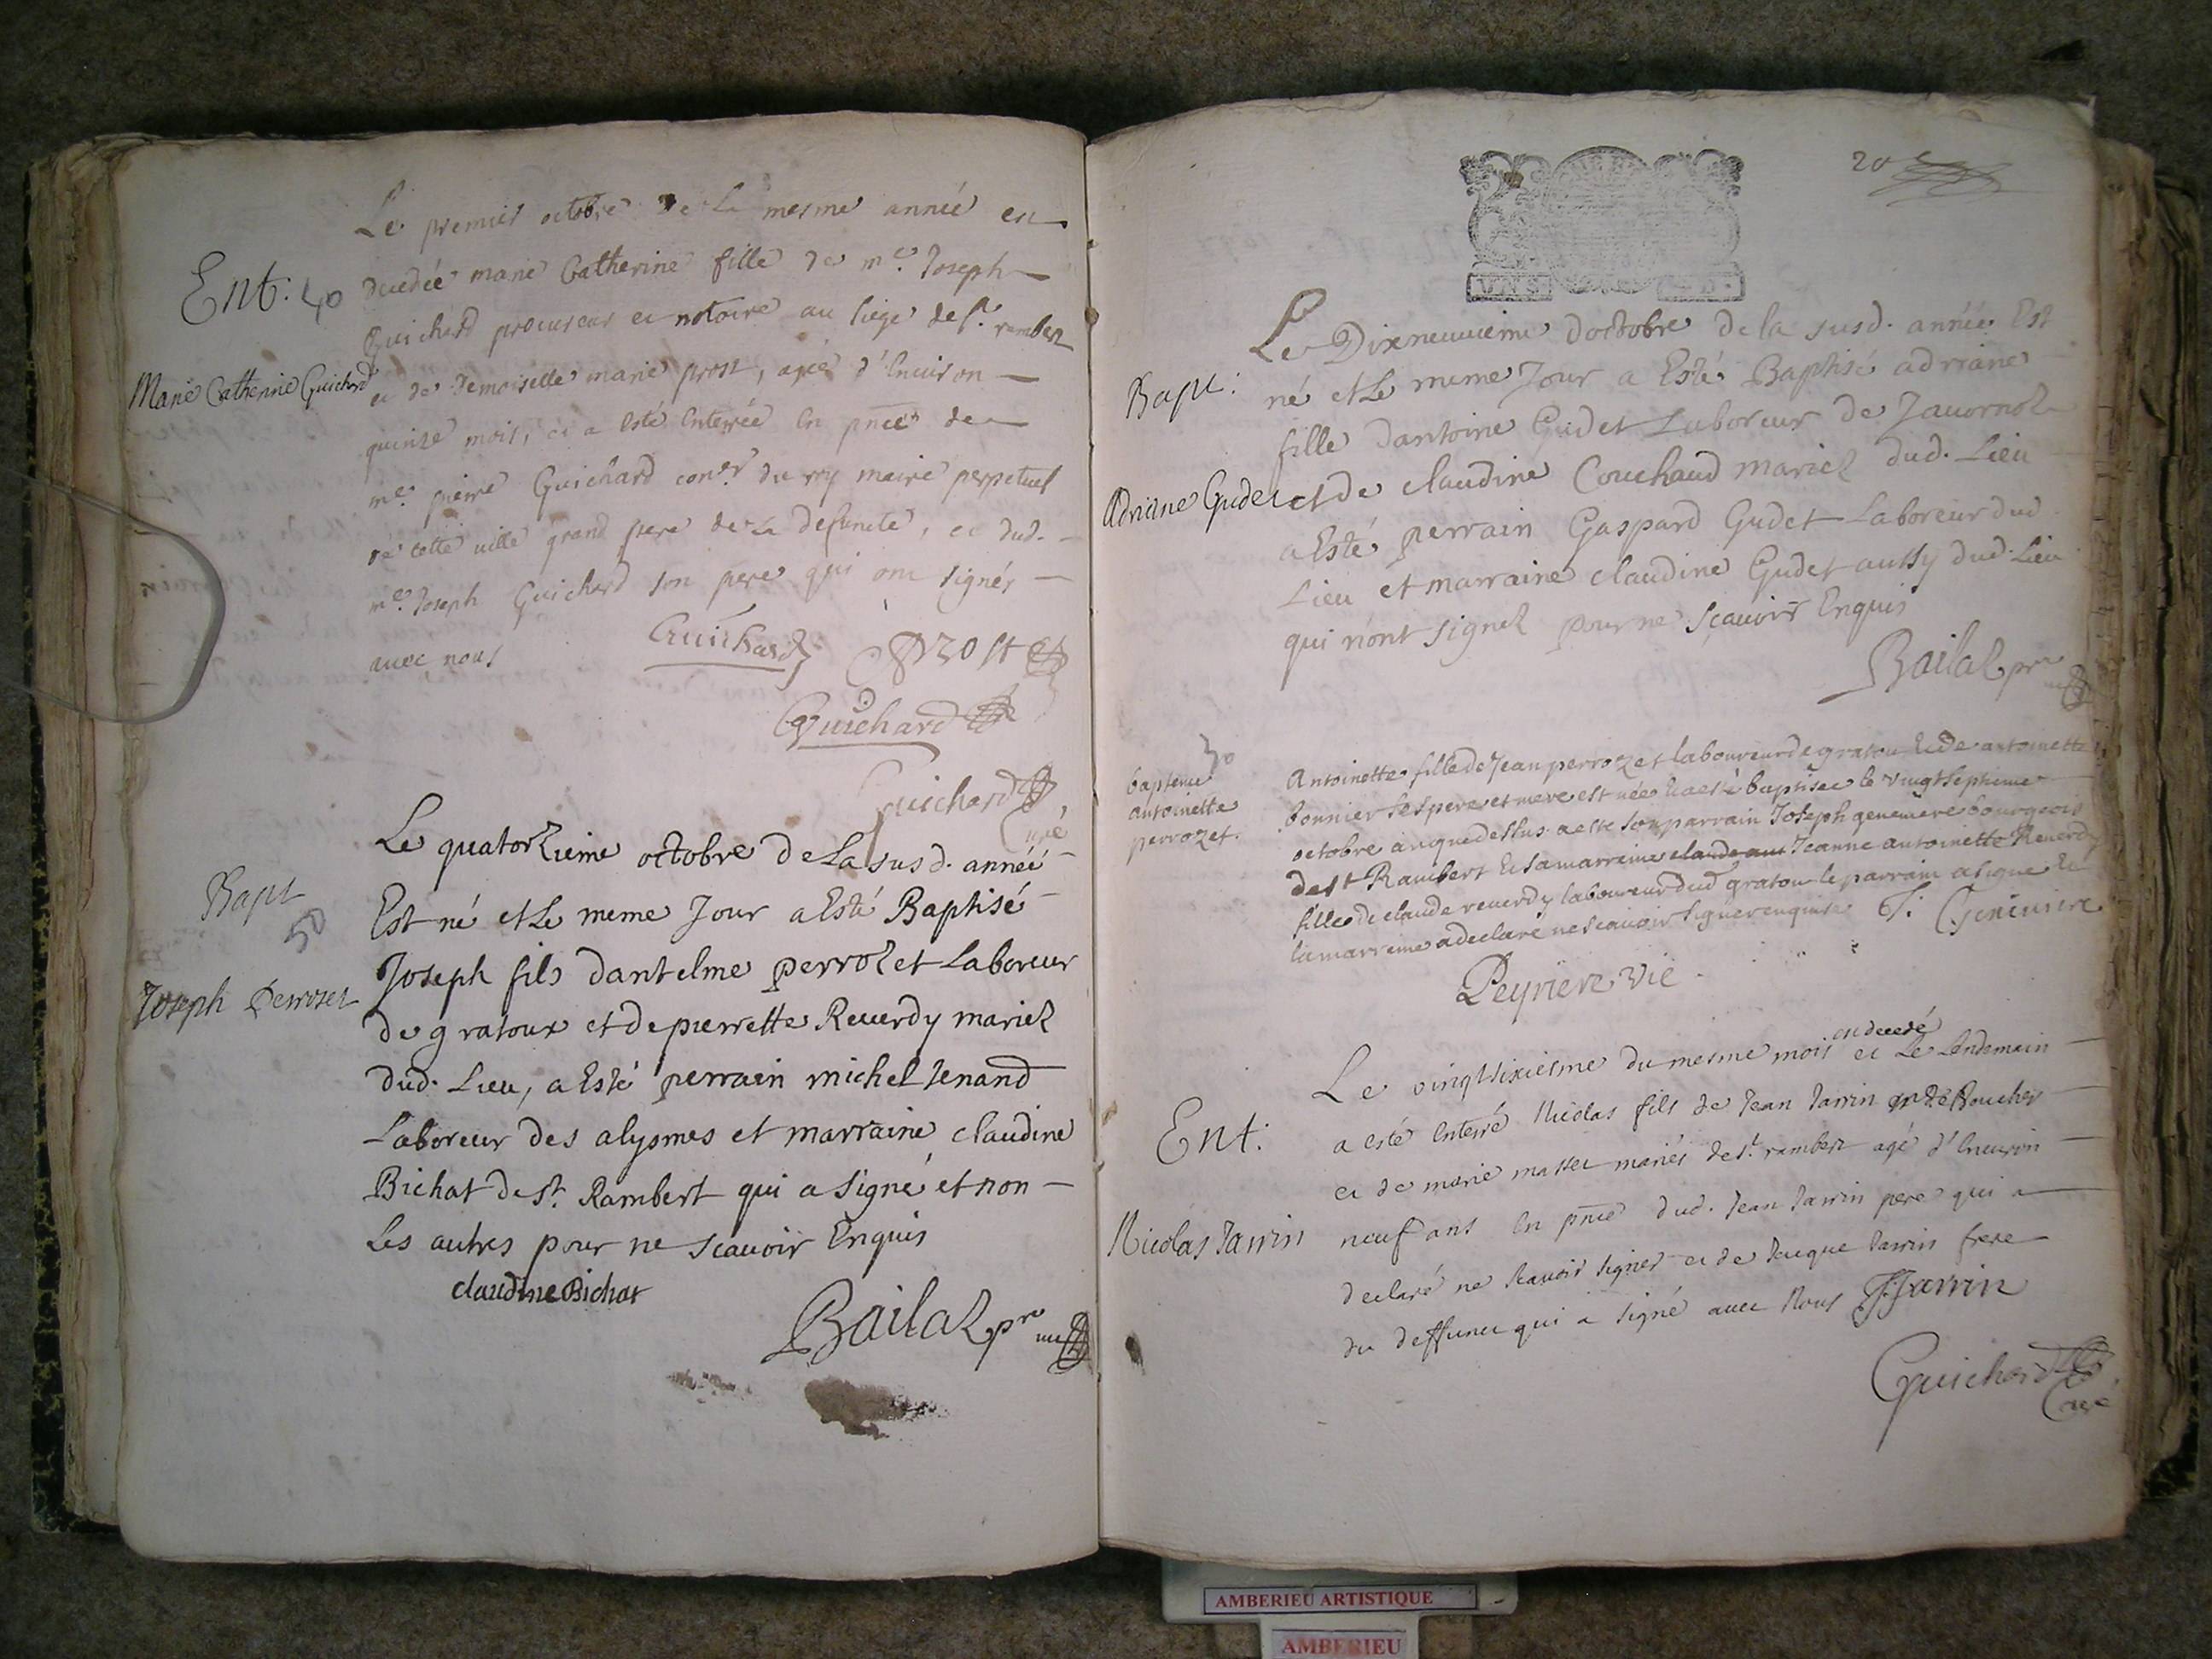 Le premier octobre de la mesme année est
Ent. 40
decedée marie Catherine fille de me. Joseph
Guichard procureur et notoire au siege de st. rambert
Marie Catherine Guichard
et de demoiselle marie prost, agée d'Enuiron
quinze mois, et a esté Enterrée En pnce de
me. pierre Guichard coner. du roy maire perpetuel
de cette uille grand pere de la defuncte, et dud.
me. Joseph Guichard son pere qui ont signés
auec nous
Guichard Prost
Guichard
Guichard
curé
Le quatorzieme octobre de la susd. année
Bapt
50
Est né et Le meme Jour a Esté Baptisé
Joseph fils dantelme perrozet Laboreur
Joseph Perrozet
de gratoux et de pierrette Reuerdy mariez
dud. Lieu, a Esté perrain michel tenand
Laboreur des alymes et marraine claudine
Bichat de st. Rambert qui a signé et non
Les autres pour ne scauoir Enquis
claudine Bichat
Bailaz pre
20
Le Dixneuuieme doctobre de la susd. année Est
Bapt:
né et Le meme Jour a Esté Baptisé adriane
fille dantoine Gudet Laboreur de Jauornoz
Adriane Gudet
et de claudine Couchaud mariez dud. Lieu
a Esté perrain Gaspard Gudet Laboreur dud
Lieu et marraine claudine Gudet aussy dud. Lieu
qui n'ont signez pour ne scauoir Enquis
Bailaz pre
30
bapteme
antoinette
perrozet.
Antoinette fille de Jean perrozet laboureur de gratou & de antoinette
bonnier ses pere et mere est née & a esté baptisée le vingtseptieme
octobre an que dessus a esté son parrain Joseph geneuiere bourgeois
de st Rambert & sa marreine claude ant Jeanne antoinette Reuerdy
fille de claude reuerdy laboureur dud gratou le parrain a signe &
la marreine a declaré ne scauoir signer enquise J. Geneuiere
Peyriere vie
est decedé
Le vingtsixiesme du mesme mois et Le Lendemain
Ent:
a esté Enterré Nicolas fils de Jean Jarrin Boucher
et de marie masset mariés de st. rambert agé d'Enuiron
Nicolas Jarrin
neuf ans En pnce dud. Jean Jarrin pere qui a
declaré ne scauoir signer et de Jacque Jarrin frere
du deffunct qui a signé auec Nous JJarrin
Guichard
curé
AMBERIEU ARTISTIQUE
AMBERIEU